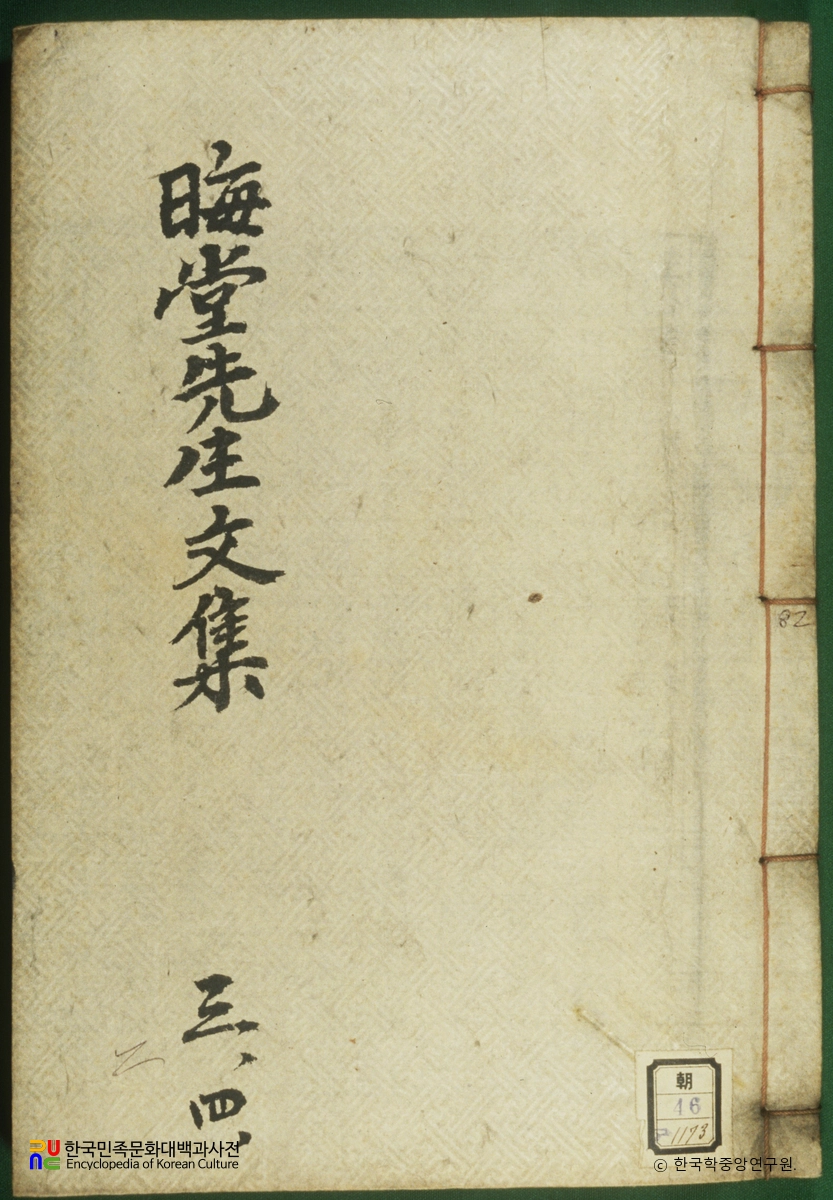 晦堂先生文集
三、四、
乙
82
朝
46
1173
한국민족문화대백과사전
Encyclopedia of Korean Culture
ⓒ 한국학중앙연구원.